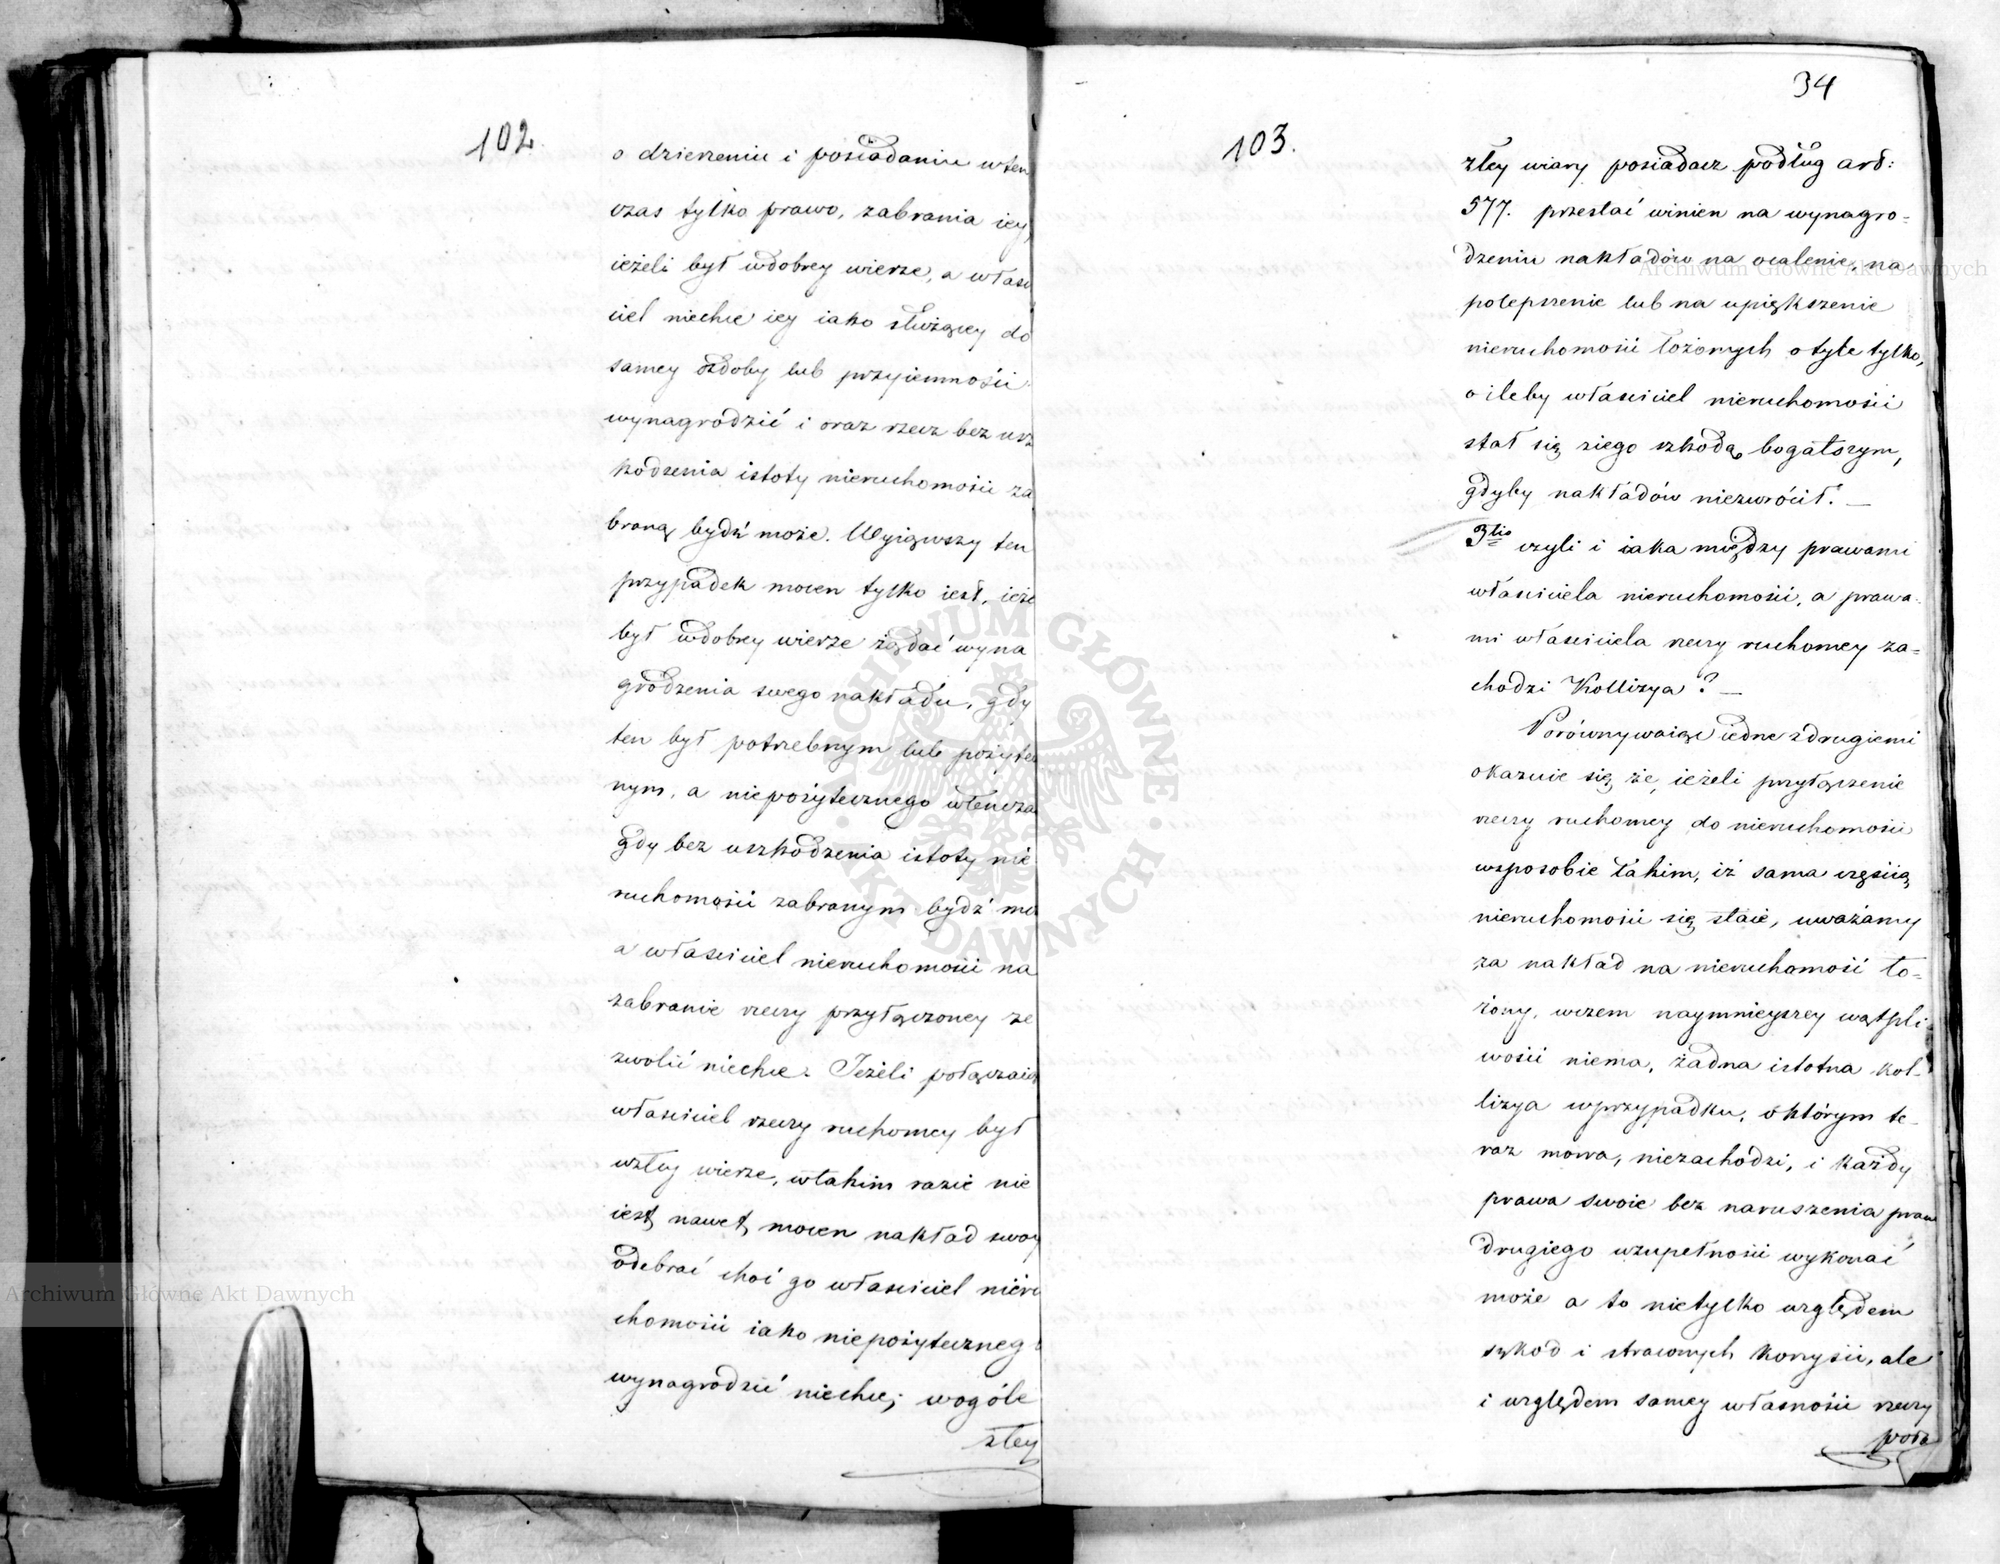 102.
o dzierzeniu i posiadaniu wten
czas tylko prawo, zabrania iey,
ieżeli był wdobrey wierze, a właści
ciel niechce iey iako służącey do
samey ozdoby lub przyiemności
wynagrodzić i oraz rzecz bez usz
kodzenia istoty nieruchomości za
braną bydź może. Wyiąwszy ten
przypadek mocen tylko iest, ieże
był wdobrey wierze żądać wyna
grodzenia swego nakładu, gdy
ten był potrzebnym lub pożytec
nym, a niepożytecznego wtencza
gdy bez uszkodzenia istoty nie
ruchomości zabranym bydź mo
a właściciel nieruchomości na
zabranie rzeczy przyłączoney ze
zwolić niechce. Jeżeli połączaią
właściciel rzeczy ruchomey był
wzłey wierze, wtakim razie nie
iest nawet mocen nakład swoy
odebrać choć go właściciel nieru
chomości iako niepożytecznego
wynagrodzić niechce; wogóle
złey
34
103.
złey wiary posiadacz podług art:
577. przestać winien na wynagro-
dzeniu nakładów na ocalenie, na
polepszenie lub na upiększenie
nieruchomości łożonych o tyle tylko,
o ileby właściciel nieruchomości
stał się ziego szkodą bogatszym,
gdyby nakładów niezwrócił. —
3tio czyli i iaka między prawami
właściciela nieruchomości, a prawa-
mi właściciela rzeczy ruchomey za=
chodzi Kollizya? —
Porównywaiąc iedne zdrugiemi
okazuie się że, ieżeli przyłączenie
rzeczy ruchomey do nieruchomości
wsposobie takim, iż sama częścią
nieruchomości się staie, uważamy
za nakład na nieruchomość ło-
żony, wczem naymnieyszey wątpli
wości niema, żadna istotna kol-
lizya wprzypadku, o którym te-
raz mowa, niezachodzi, i każdy
prawa swoie bez naruszenia praw
drugiego wzupełności wykonać
może a to nietylko względem
szkod i straconych korzyści, ale
i względem samey własności rzeczy
połą
Archiwum Główne Akt Dawnych
Archiwum Główne Akt Dawnych
ARCHIWUM GŁÓWNE · AKT DAWNYCH ·